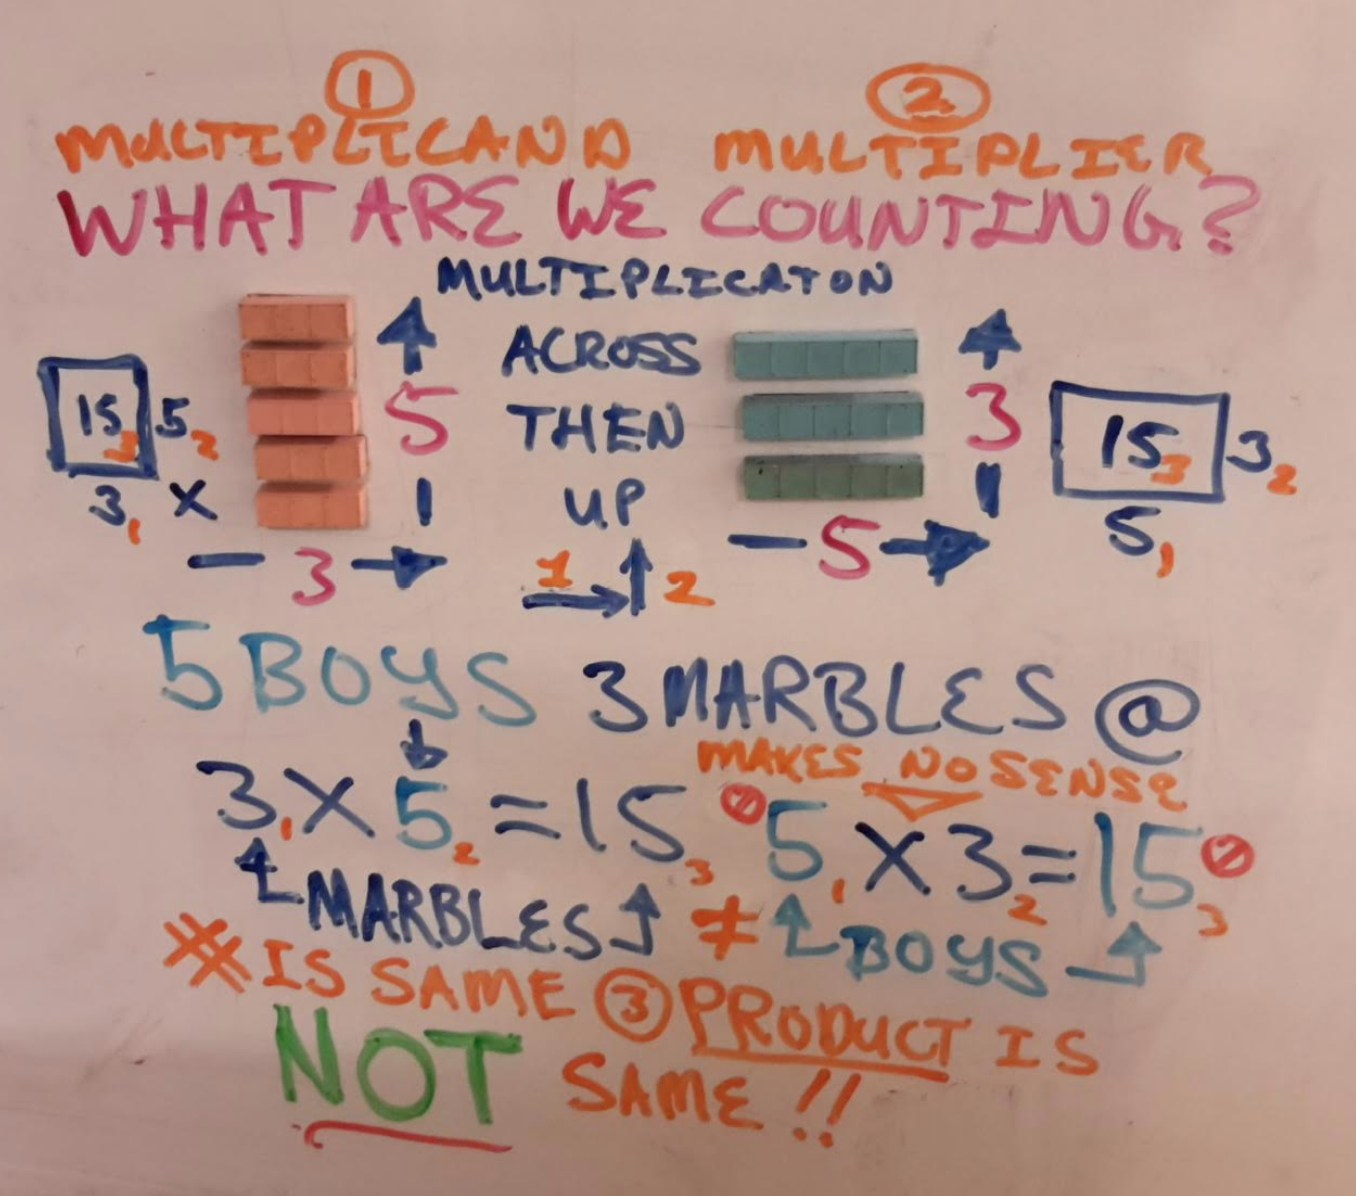 ① ②
MULTIPLICAND MULTIPLIER
WHAT ARE WE COUNTING?
MULTIPLICATON
ACROSS
THEN
UP
15 3 5 2
3 1 X
5
3
1 2
3
5
15 3 3 2
5 1
5 BOYS 3 MARBLES @
MAKES NO SENSE
3 1 X 5 2 = 15 3
5 1 X 3 2 = 15 3
MARBLES ≠ BOYS
# IS SAME ③ PRODUCT IS
NOT SAME!!